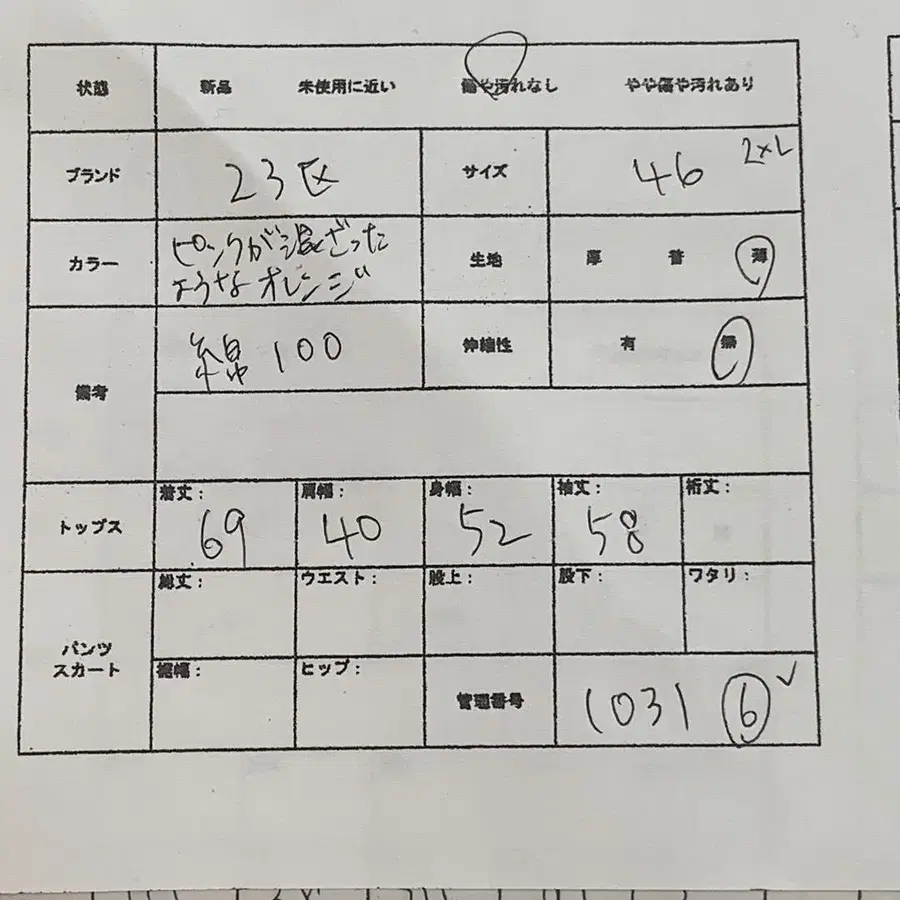 状態 新品 未使用に近い 傷や汚れなし やや傷や汚れあり
ブランド 23区 サイズ 46 2XL
カラー ピンクが混ざった
ようなオレンジ
生地 厚 普 薄
備考 綿 100 伸縮性 有 無
トップス 着丈: 69 肩幅: 40 身幅: 52 袖丈: 58 裄丈:
パンツ
スカート
総丈: ウエスト: 股上: 股下: ワタリ:
裾幅: ヒップ: 管理番号 1031 ⑥ ✓